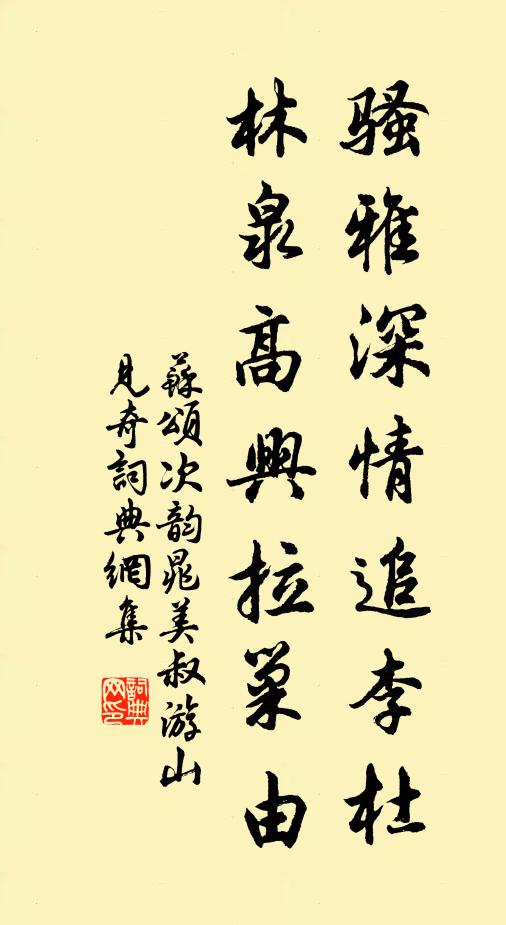 騷雅深情追李杜
林泉高興拉巢由
蘇頌次韵晁美叔游山
見奇詞典網集
詞典
网印